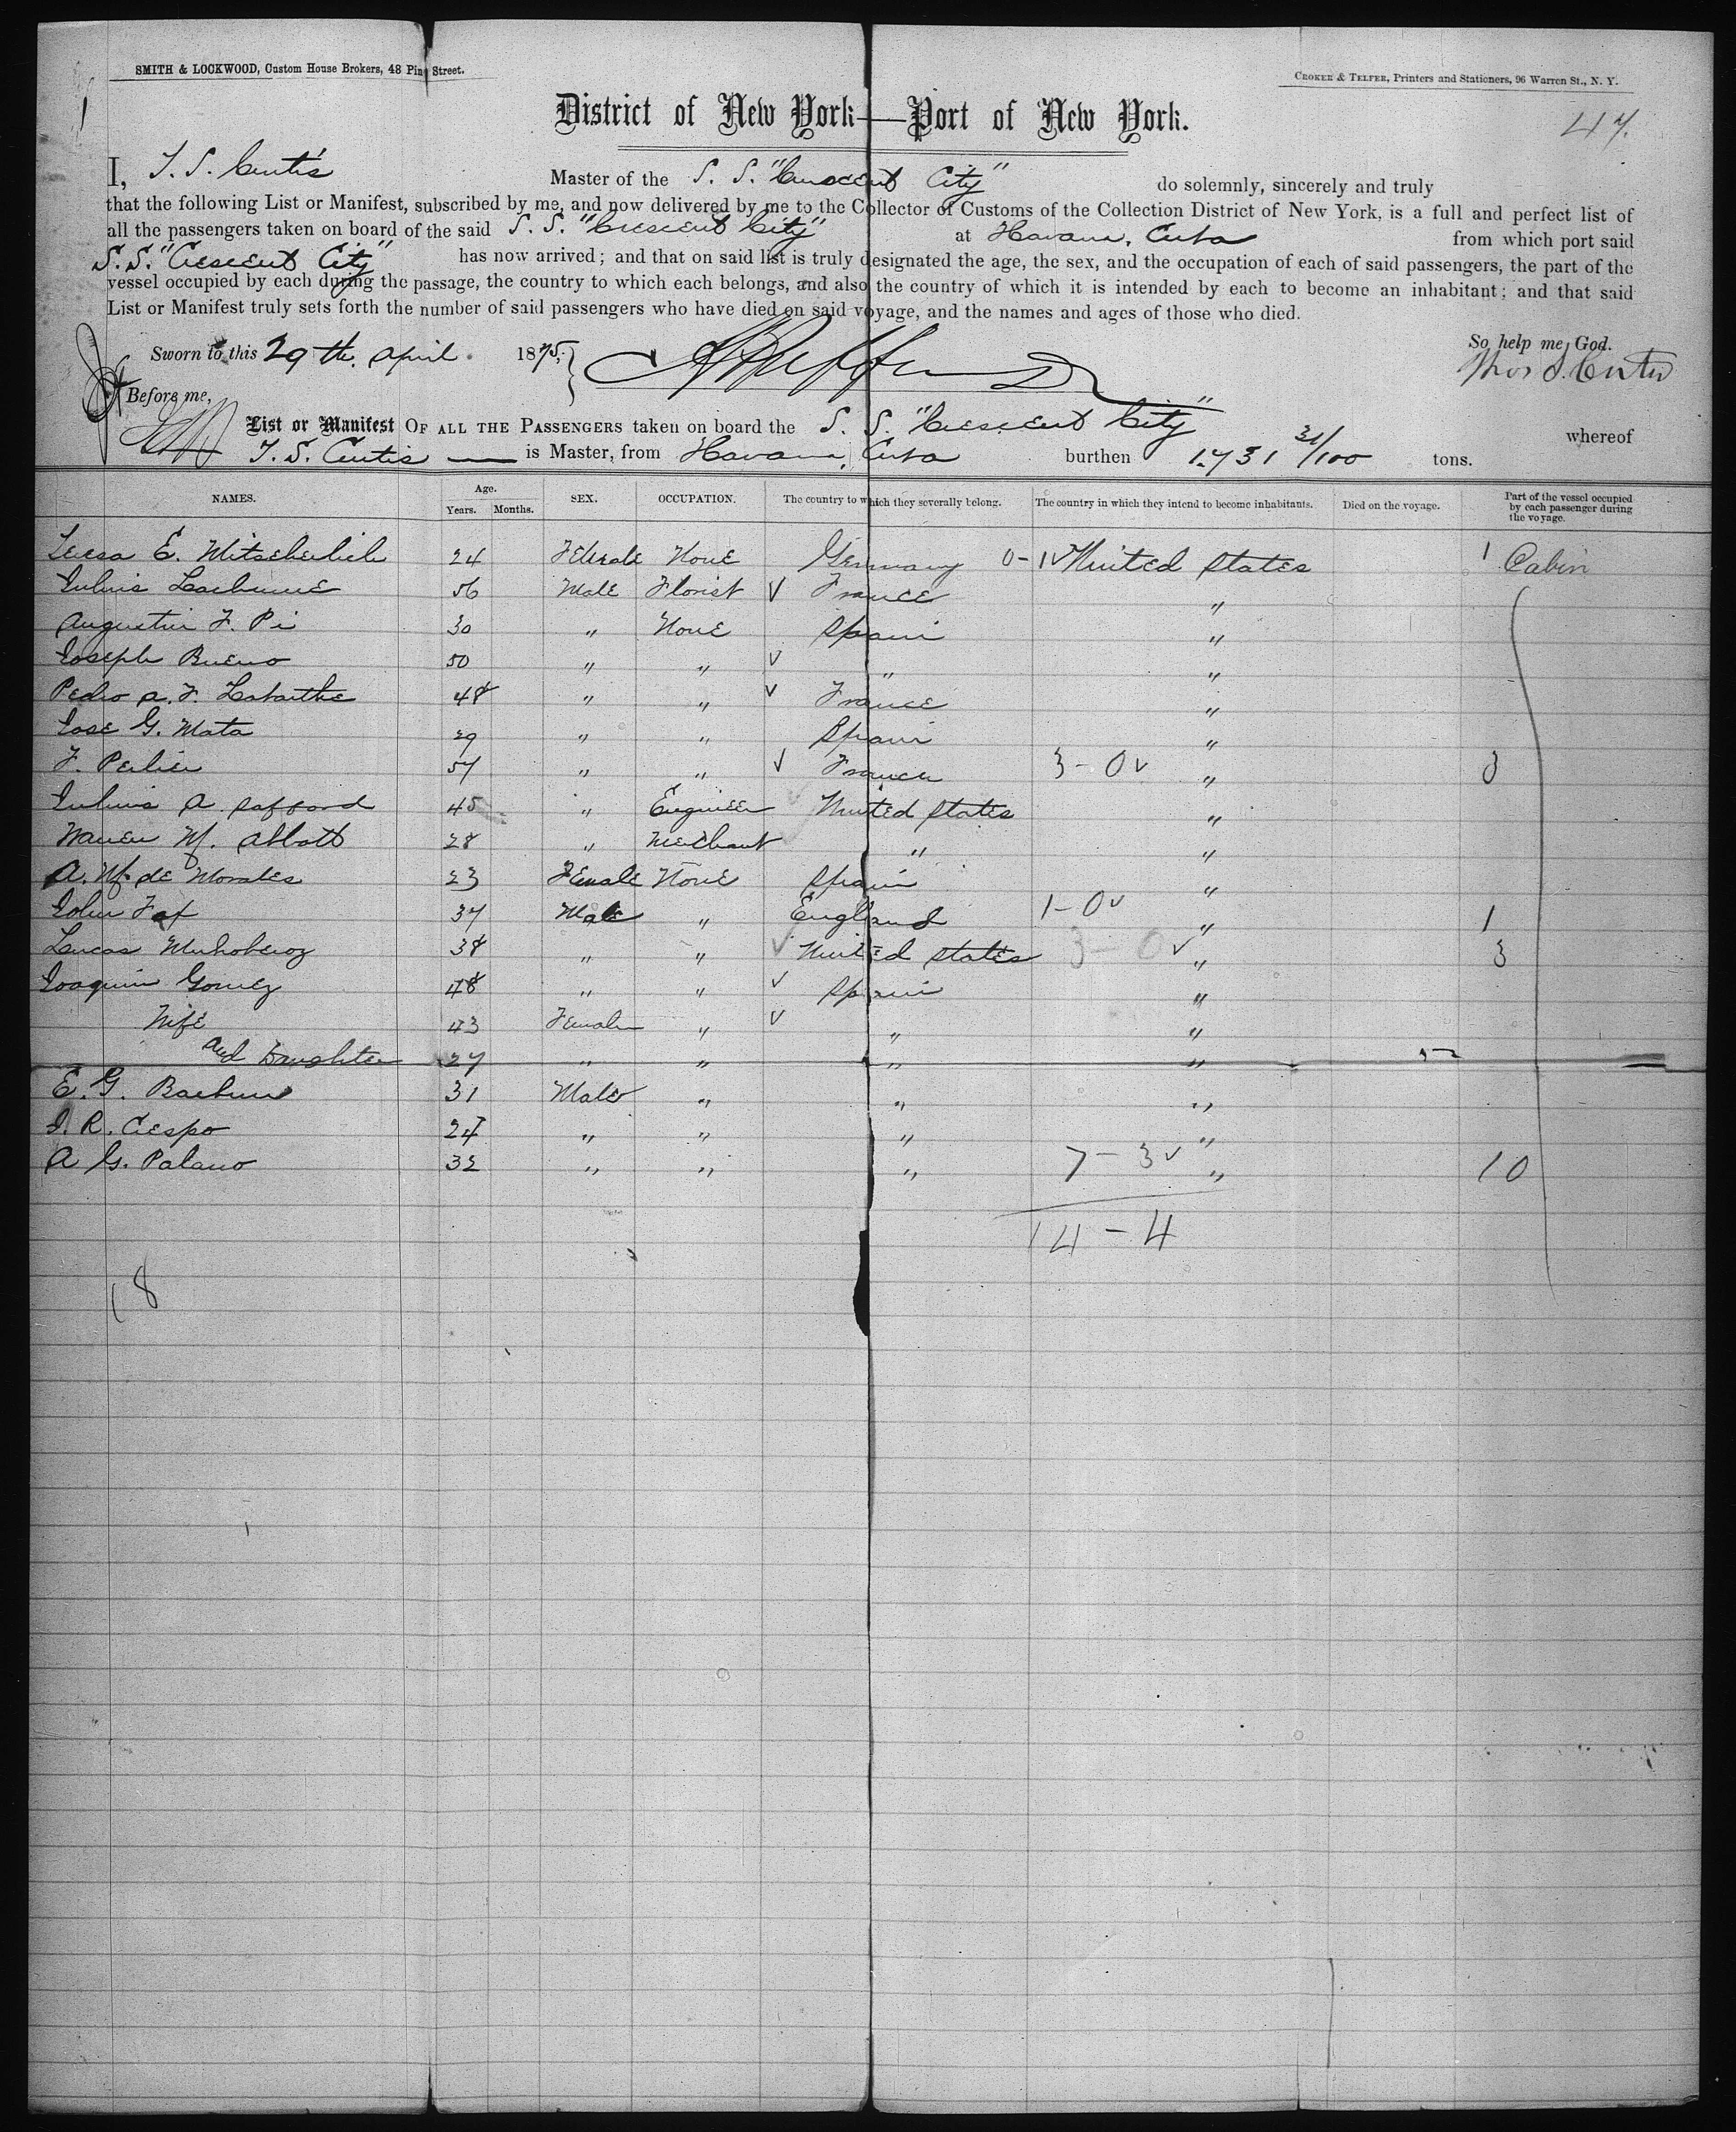 SMITH & LOCKWOOD, Custom House Brokers, 48 Pine Street.
CROKER & TELFER, Printers and Stationers, 96 Warren St., N. Y.
1
District of New York—Port of New York.
47.
I, T. S. Curtis Master of the S. S. "Crescent City" do solemnly, sincerely and truly
that the following List or Manifest, subscribed by me, and now delivered by me to the Collector of Customs of the Collection District of New York, is a full and perfect list of
all the passengers taken on board of the said S. S. "Crescent City" at Havana, Cuba from which port said
S. S. "Crescent City" has now arrived; and that on said list is truly designated the age, the sex, and the occupation of each of said passengers, the part of the
vessel occupied by each during the passage, the country to which each belongs, and also the country of which it is intended by each to become an inhabitant; and that said
List or Manifest truly sets forth the number of said passengers who have died on said voyage, and the names and ages of those who died.
So help me God.
Sworn to this 29th. April 1875.
Thos S. Curtis
Before me,
List or Manifest OF ALL THE PASSENGERS taken on board the S. S. "Crescent City" whereof
T. S. Curtis is Master, from Havana, Cuba burthen 1.731 31/100 tons.
NAMES. Age. Years. Months. SEX. OCCUPATION. The country to which they severally belong. The country in which they intend to become inhabitants. Died on the voyage. Part of the vessel occupied by each passenger during the voyage.
E. Mitscherlich 24 Female None Germany 0-1 United States 1 Cabin
Julius 56 Male Florist France "
Augustin F. Pi 30 " None Spain "
Joseph Bueno 50 " " " "
Pedro A. F. Labarthe 48 " " France "
Jose G. Mata 29 " " Spain "
F. 57 " " France 3-0 " 3
Julius A. Safford 45 " Engineer United States "
Warren M. Abbott 28 " Merchant " "
A. M. de Morales 23 Female None Spain "
John 37 Male " England 1-0 " 1
Lucas 38 " " United States 3-0 " 3
Joaquin Gomez 48 " " Spain "
Wife 43 Female " " "
and Daughter 27 " " " "
E. G. 31 Male " " "
R. Crespo 24 " " " "
A G. 32 " " " 7-3 " 10
14-4
18